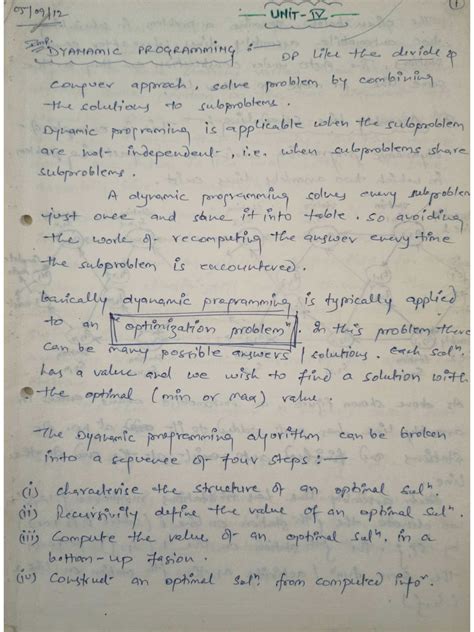 05/09/12
UNIT-IV
1
Imp:
DYANAMIC PROGRAMMING :- DP like the devide &
conquer approch, solve problem by combining
the solutions to subproblems.
Dynamic programing is applicable when the subproblem
are not independent, i.e. when subproblems share
subproblems.
A dynamic programming solves every subproblem
just once and save it into table. so avoiding
the work of recomputing the answer every time
the subproblem is encountered.
basically dyanamic programming is typically applied
to an "optimization problem". In this problem there
can be many possible answers / solutions. each solⁿ.
has a value and we wish to find a solution with
the optimal (min or max) value.
The Dyanamic programming algorithm can be broken
into a sequence of four steps :—
(i) characterise the structure of an optimal solⁿ.
(ii) Recursivily define the value of an optimal solⁿ.
(iii) Compute the value of an optimal solⁿ. in a
bottom-up fasion.
(iv) Construct an optimal solⁿ from computed infoʳ.